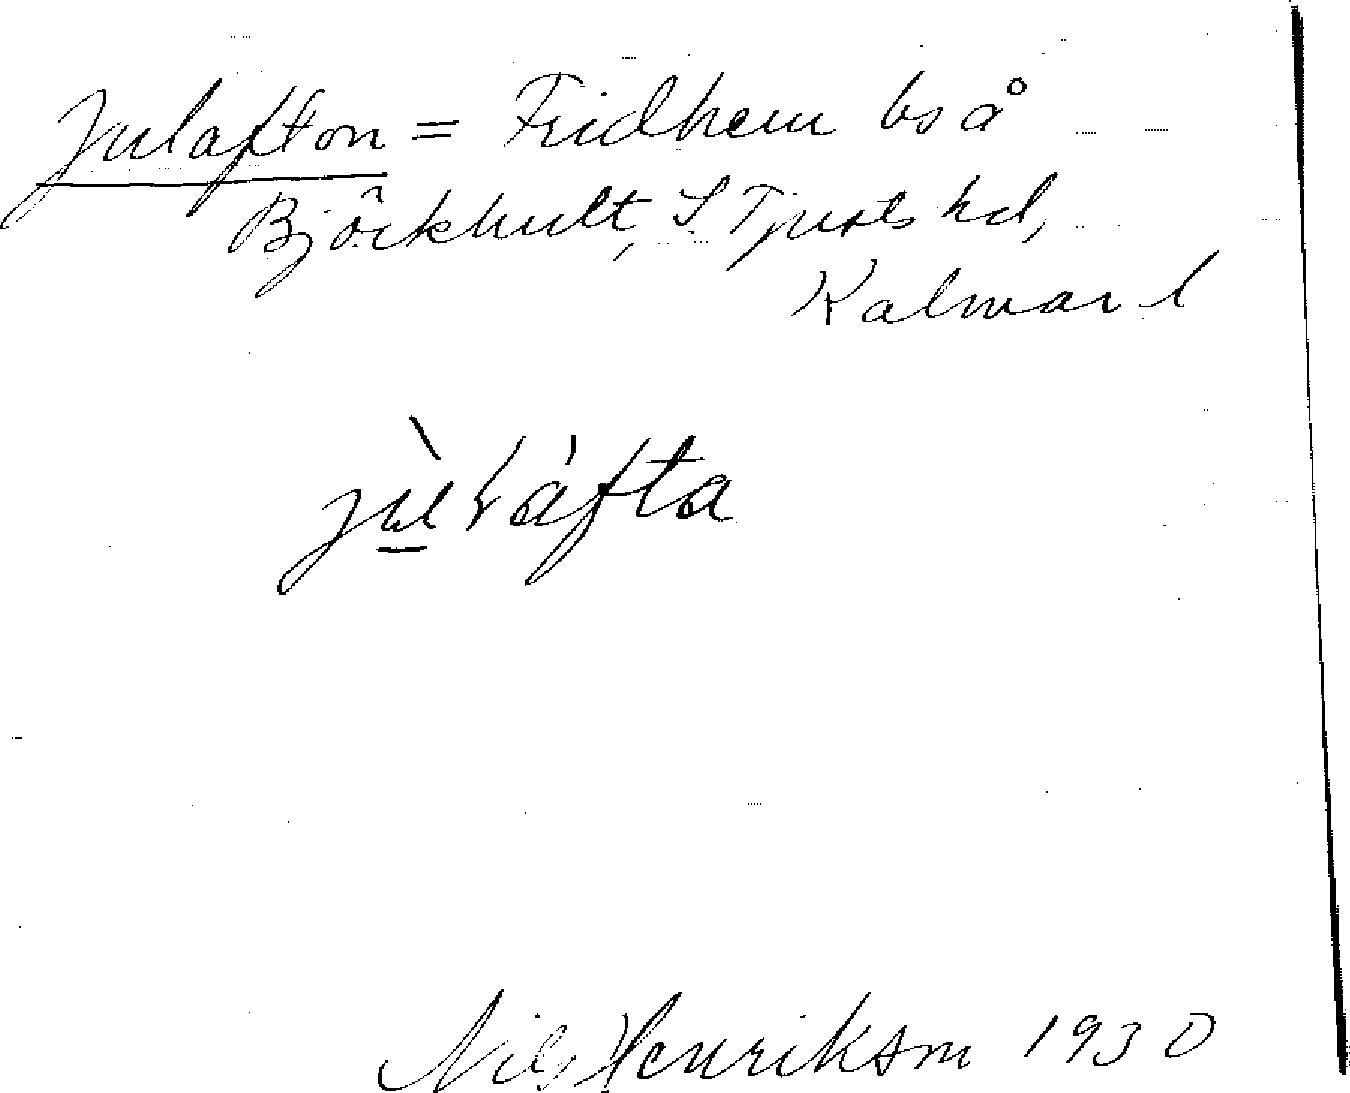 Julafton = Fridhem bs å
Björkhult, S. Tjusts hd,
Kalmar l
jùláfta
Nils Henrikson 1930